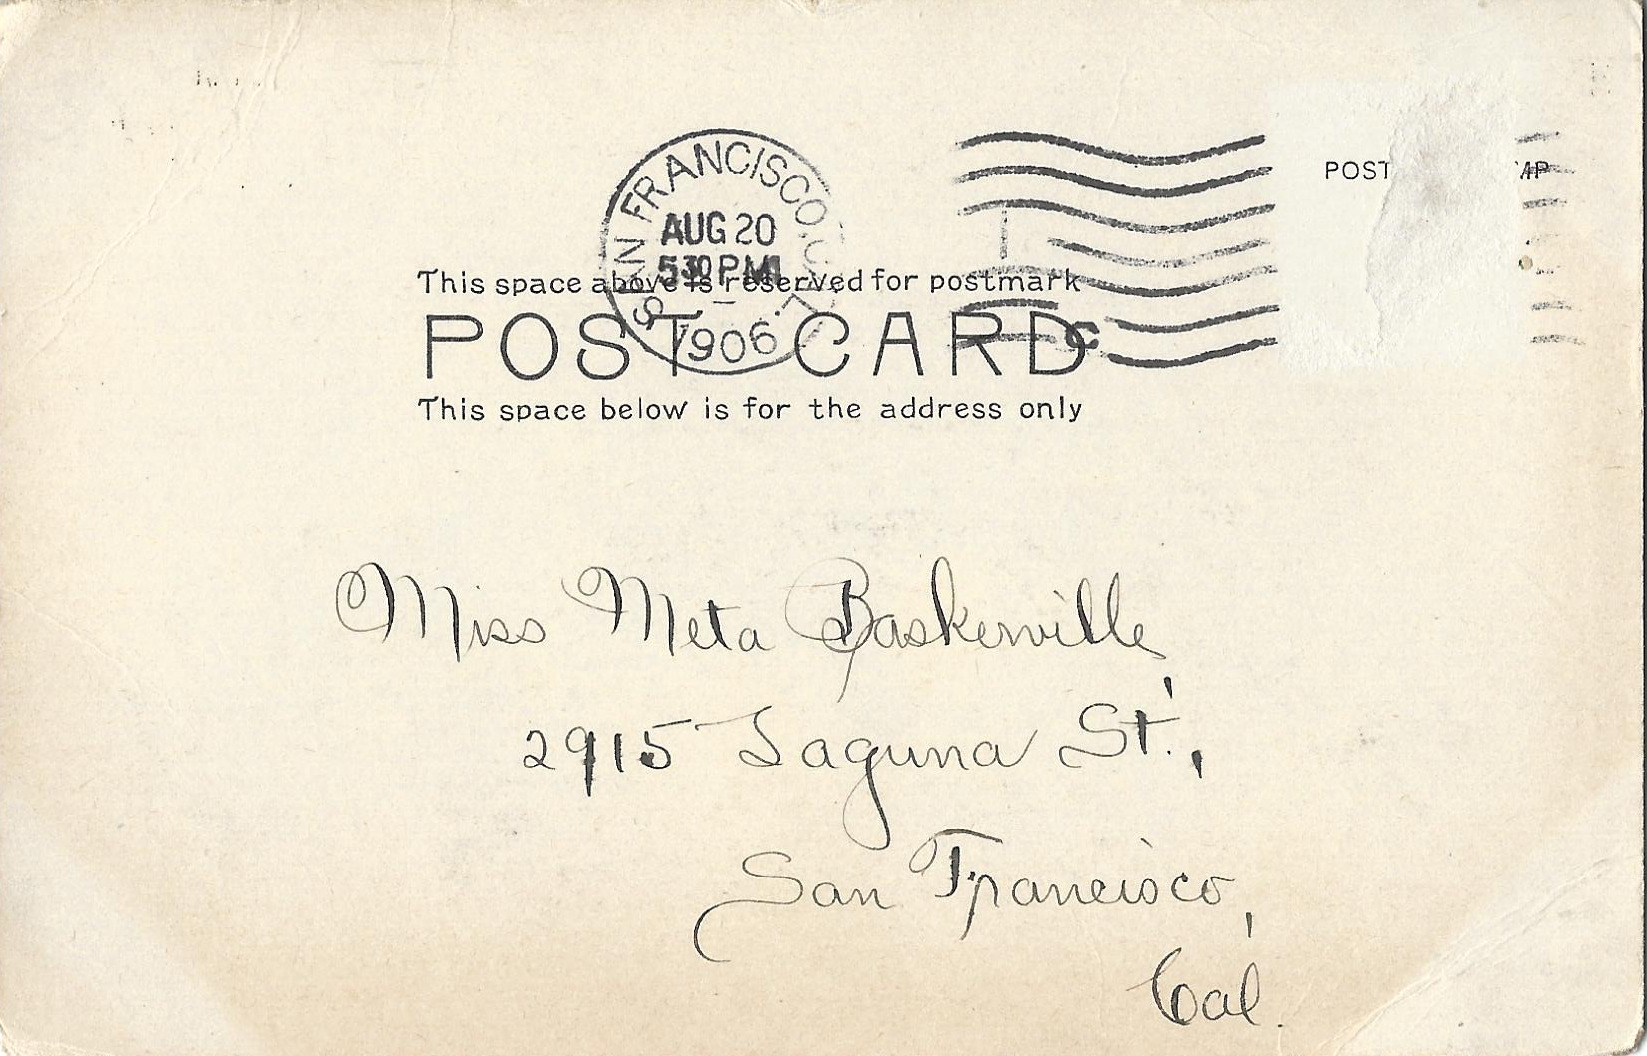 SAN FRANCISCO, CAL.
AUG 20
5 30 PM
1906
POST
This space above is reserved for postmark
POST CARD
C
This space below is for the address only
Miss Meta Baskerville,
2915 Laguna St.,
San Francisco,
Cal.